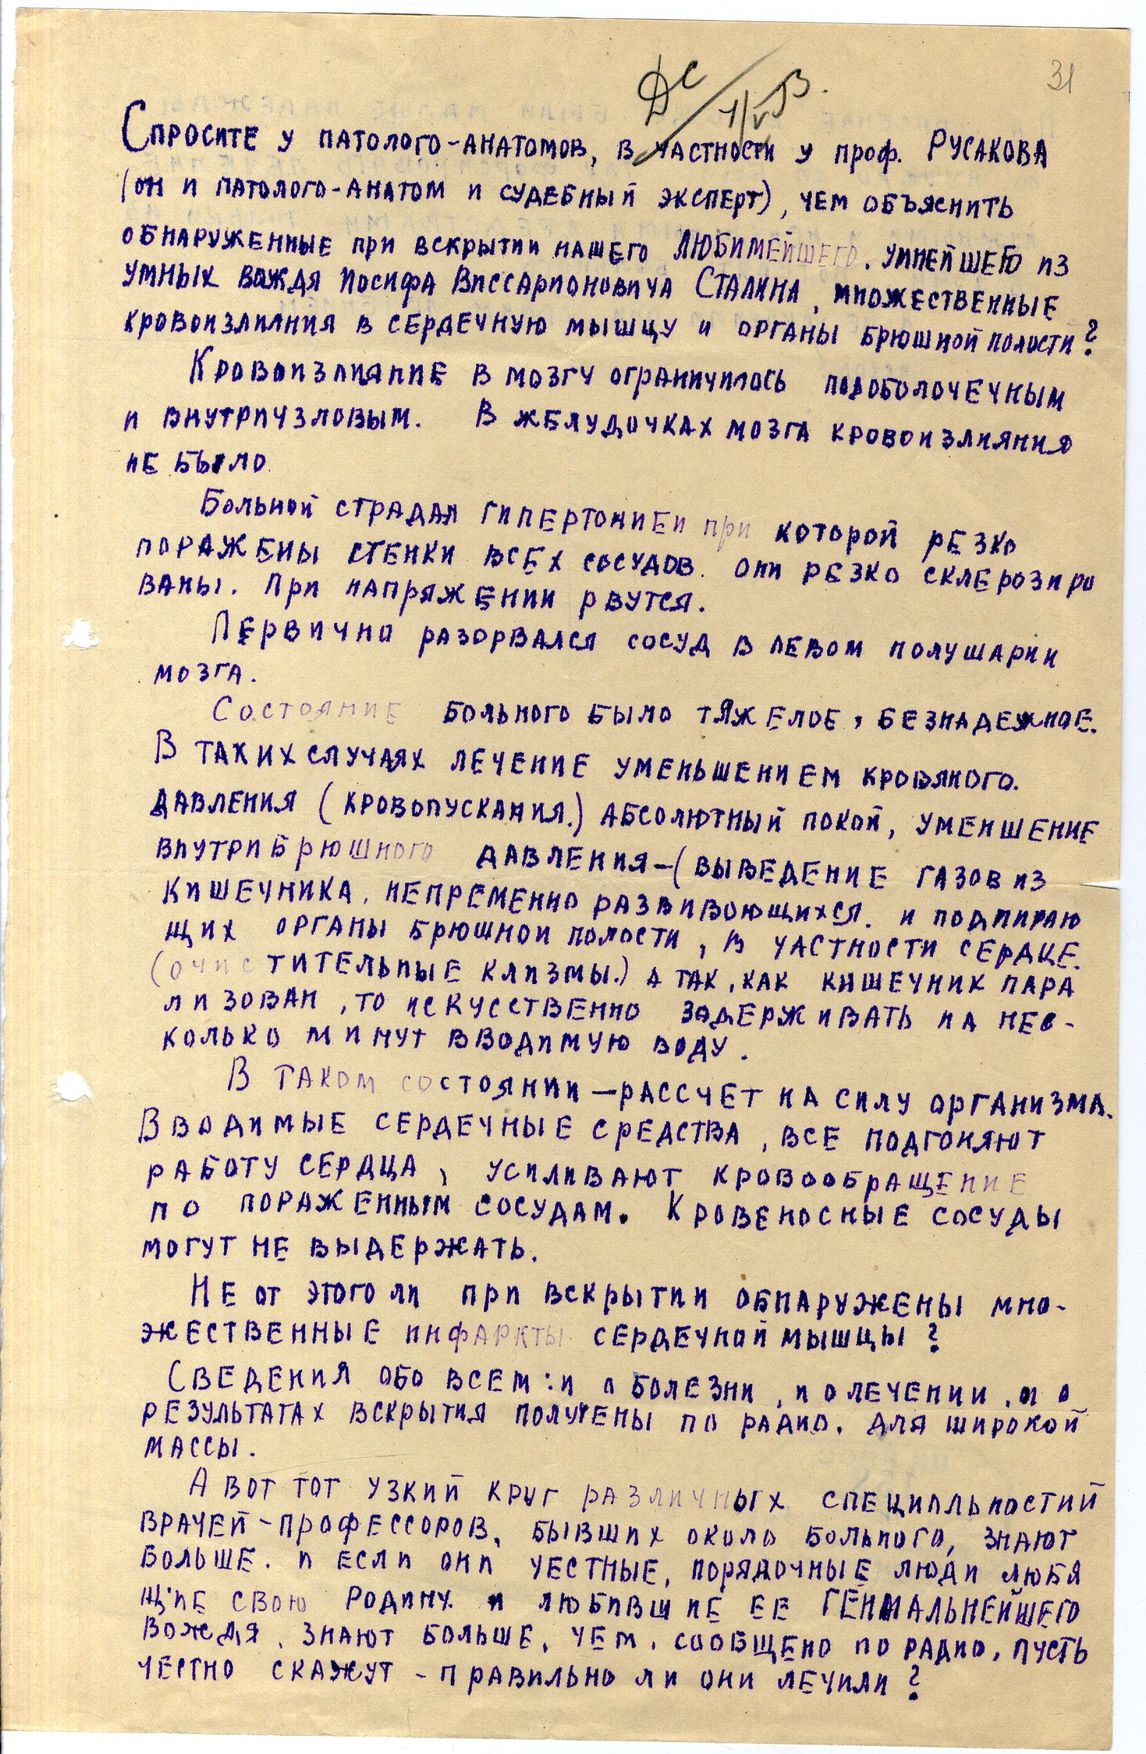 31
ДС 1/V В.
Спросите у патолого-анатомов, в частности у проф. Русакова
(он и патолого-анатом и судебный эксперт), чем объяснить
обнаруженные при вскрытии нашего любимейшего. умнейшего из
умных вождя Иосифа Виссарионовича Сталина, множественные
кровоизлияния в сердечную мышцу и органы брюшной полости?
Кровоизлияние в мозгу ограничилось подоболочечным
и внутриузловым. В желудочках мозга кровоизлияния
не было.
Больной страдал гипертонией при которой резко
поражены стенки всех сосудов. Они резко склерозиро
ваны. При напряжении рвутся.
Первично разорвался сосуд в левом полушарии
мозга.
Состояние больного было тяжелое, безнадежное.
В таких случаях лечение уменьшением кровяного.
давления (кровопускания.) абсолютный покой, уменшение
внутрибрюшного давления-(выведение газов из
кишечника, непременно развивоющихся. и подпираю
щих органы брюшной полости, в частности сердце.
(очистительные клизмы.) а так, как кишечник пара
лизован, то искусственно задерживать на нес-
колько минут вводимую воду.
В таком состоянии - рассчет на силу организма.
Вводимые сердечные средства, все подгоняют
работу сердца, усиливают кровообращение
по пораженным сосудам. Кровеносные сосуды
могут не выдержать.
Не от этого ли при вскрытии обнаружены мно-
жественные инфаркты сердечной мышцы?
Сведения обо всем: и о болезни, и о лечении, и о
результатах вскрытия получены по радио. для широкой
массы.
А вот тот узкий круг различных специальностий
врачей-профессоров, бывших около больного, знают
больше. и если они честные, порядочные люди любя
щие свою Родину и любившие ее гениальнейшего
вождя, знают больше, чем, сообщено по радио, пусть
честно скажут - правильно ли они лечили?